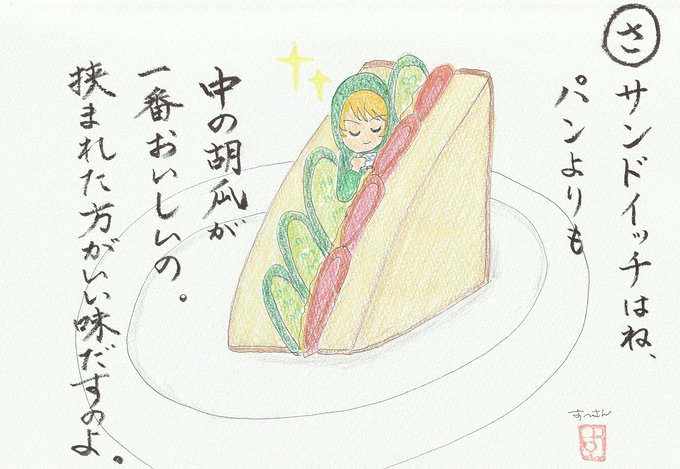 さ
サンドイッチはね、
パンよりも
中の胡瓜が
一番おいしいの。
挟まれた方がいい味だすのよ。
すーさん